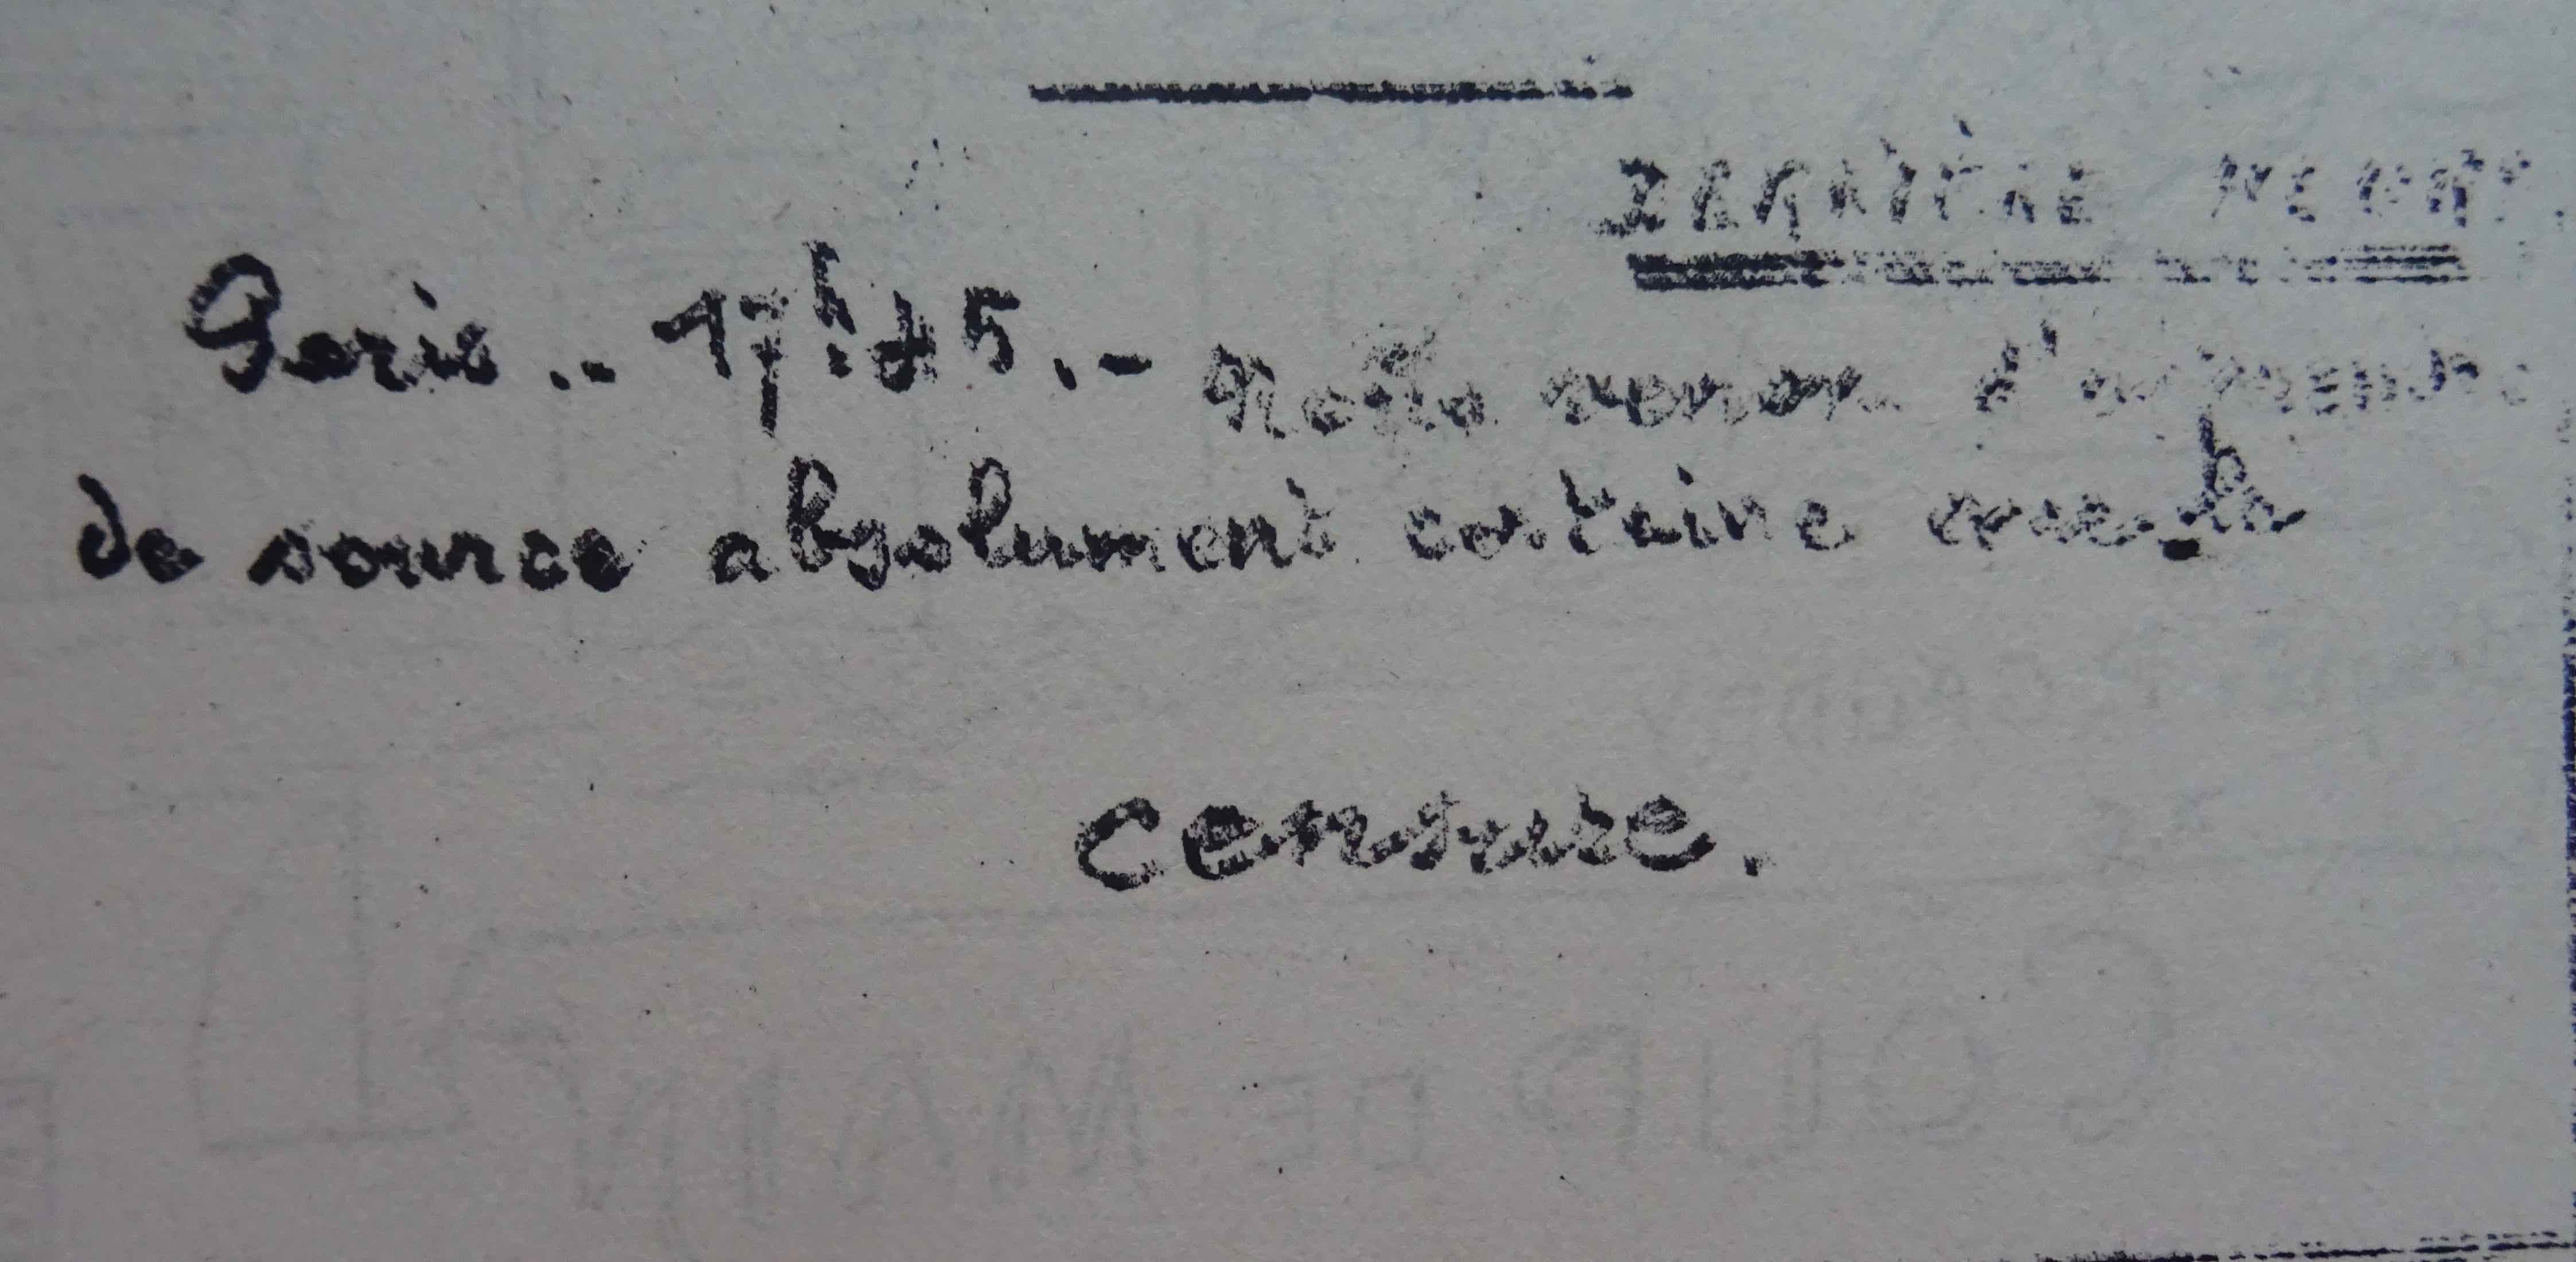 DERNIÈRE HEURE
Paris.- 17h.45.- Nous venons d'apprendre
de source absolument certaine que la
censure.
COUP DE MAIN